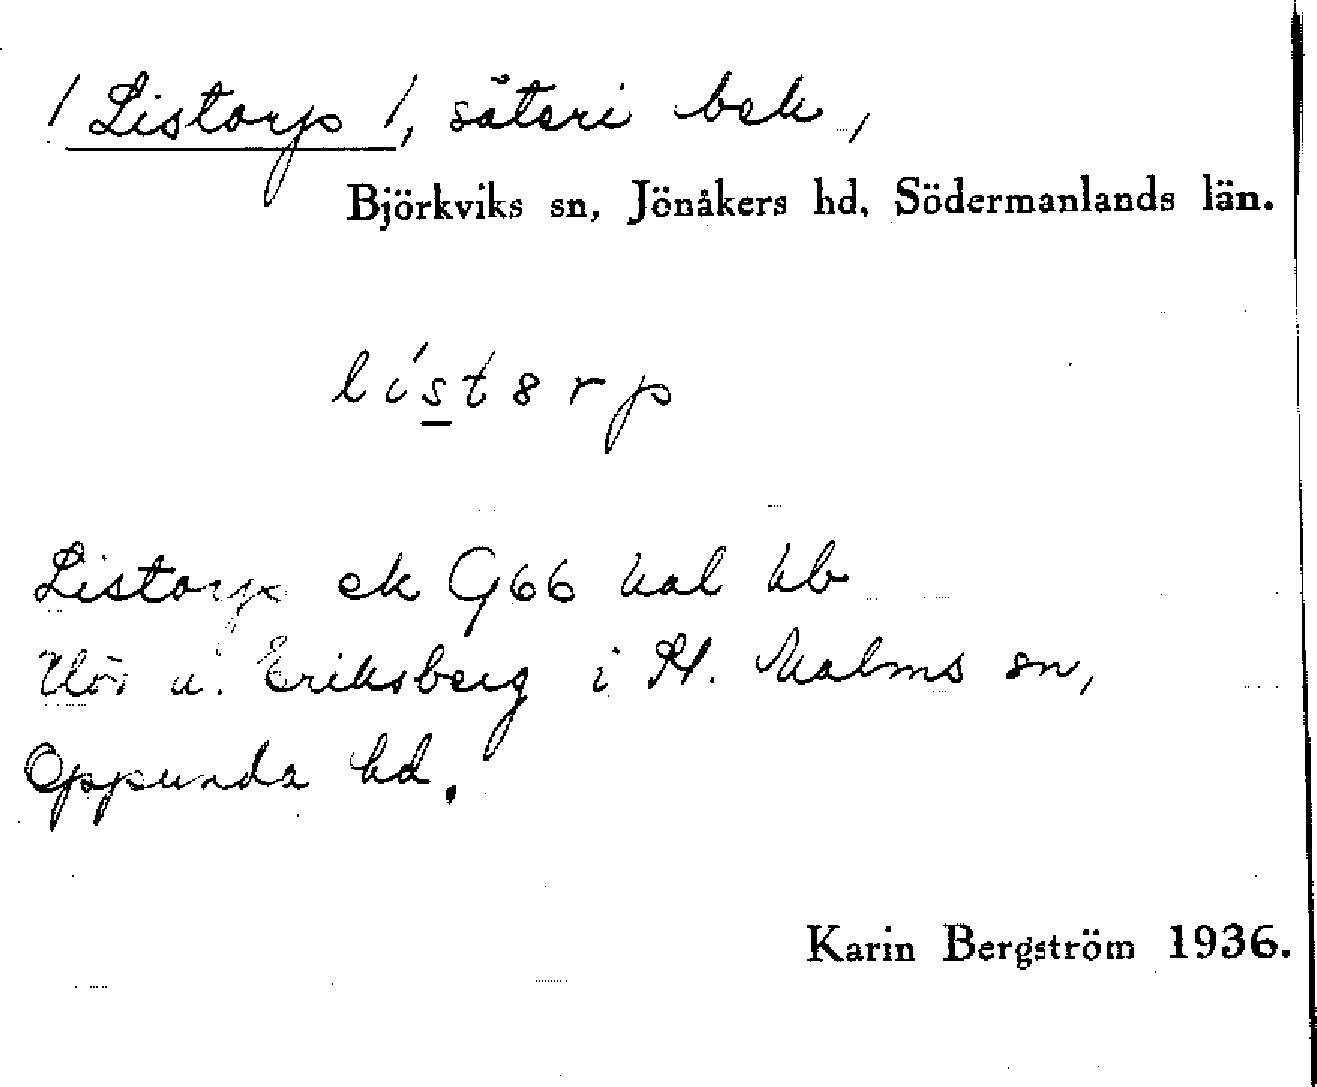 / Listorp /, säteri bek,
Björkviks sn, Jönåkers hd, Södermanlands län.
lístɜrp
Listorp ek G66 kal hb
Hör u. Eriksberg i St. Malms sn,
Oppunda hd.
Karin Bergström 1936.